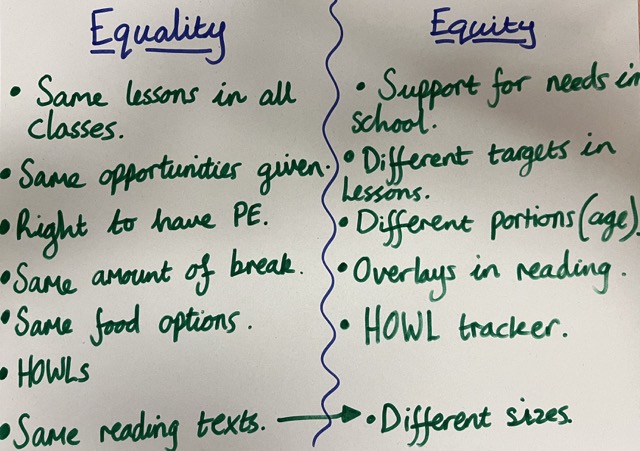 Equality
• Same lessons in all
classes.
• Same opportunities given.
• Right to have PE.
• Same amount of break.
• Same food options.
• HOWLs
• Same reading texts.
Equity
• Support for needs in
school.
• Different targets in
lessons.
• Different portions (age).
• Overlays in reading.
• HOWL tracker.
• Different sizes.